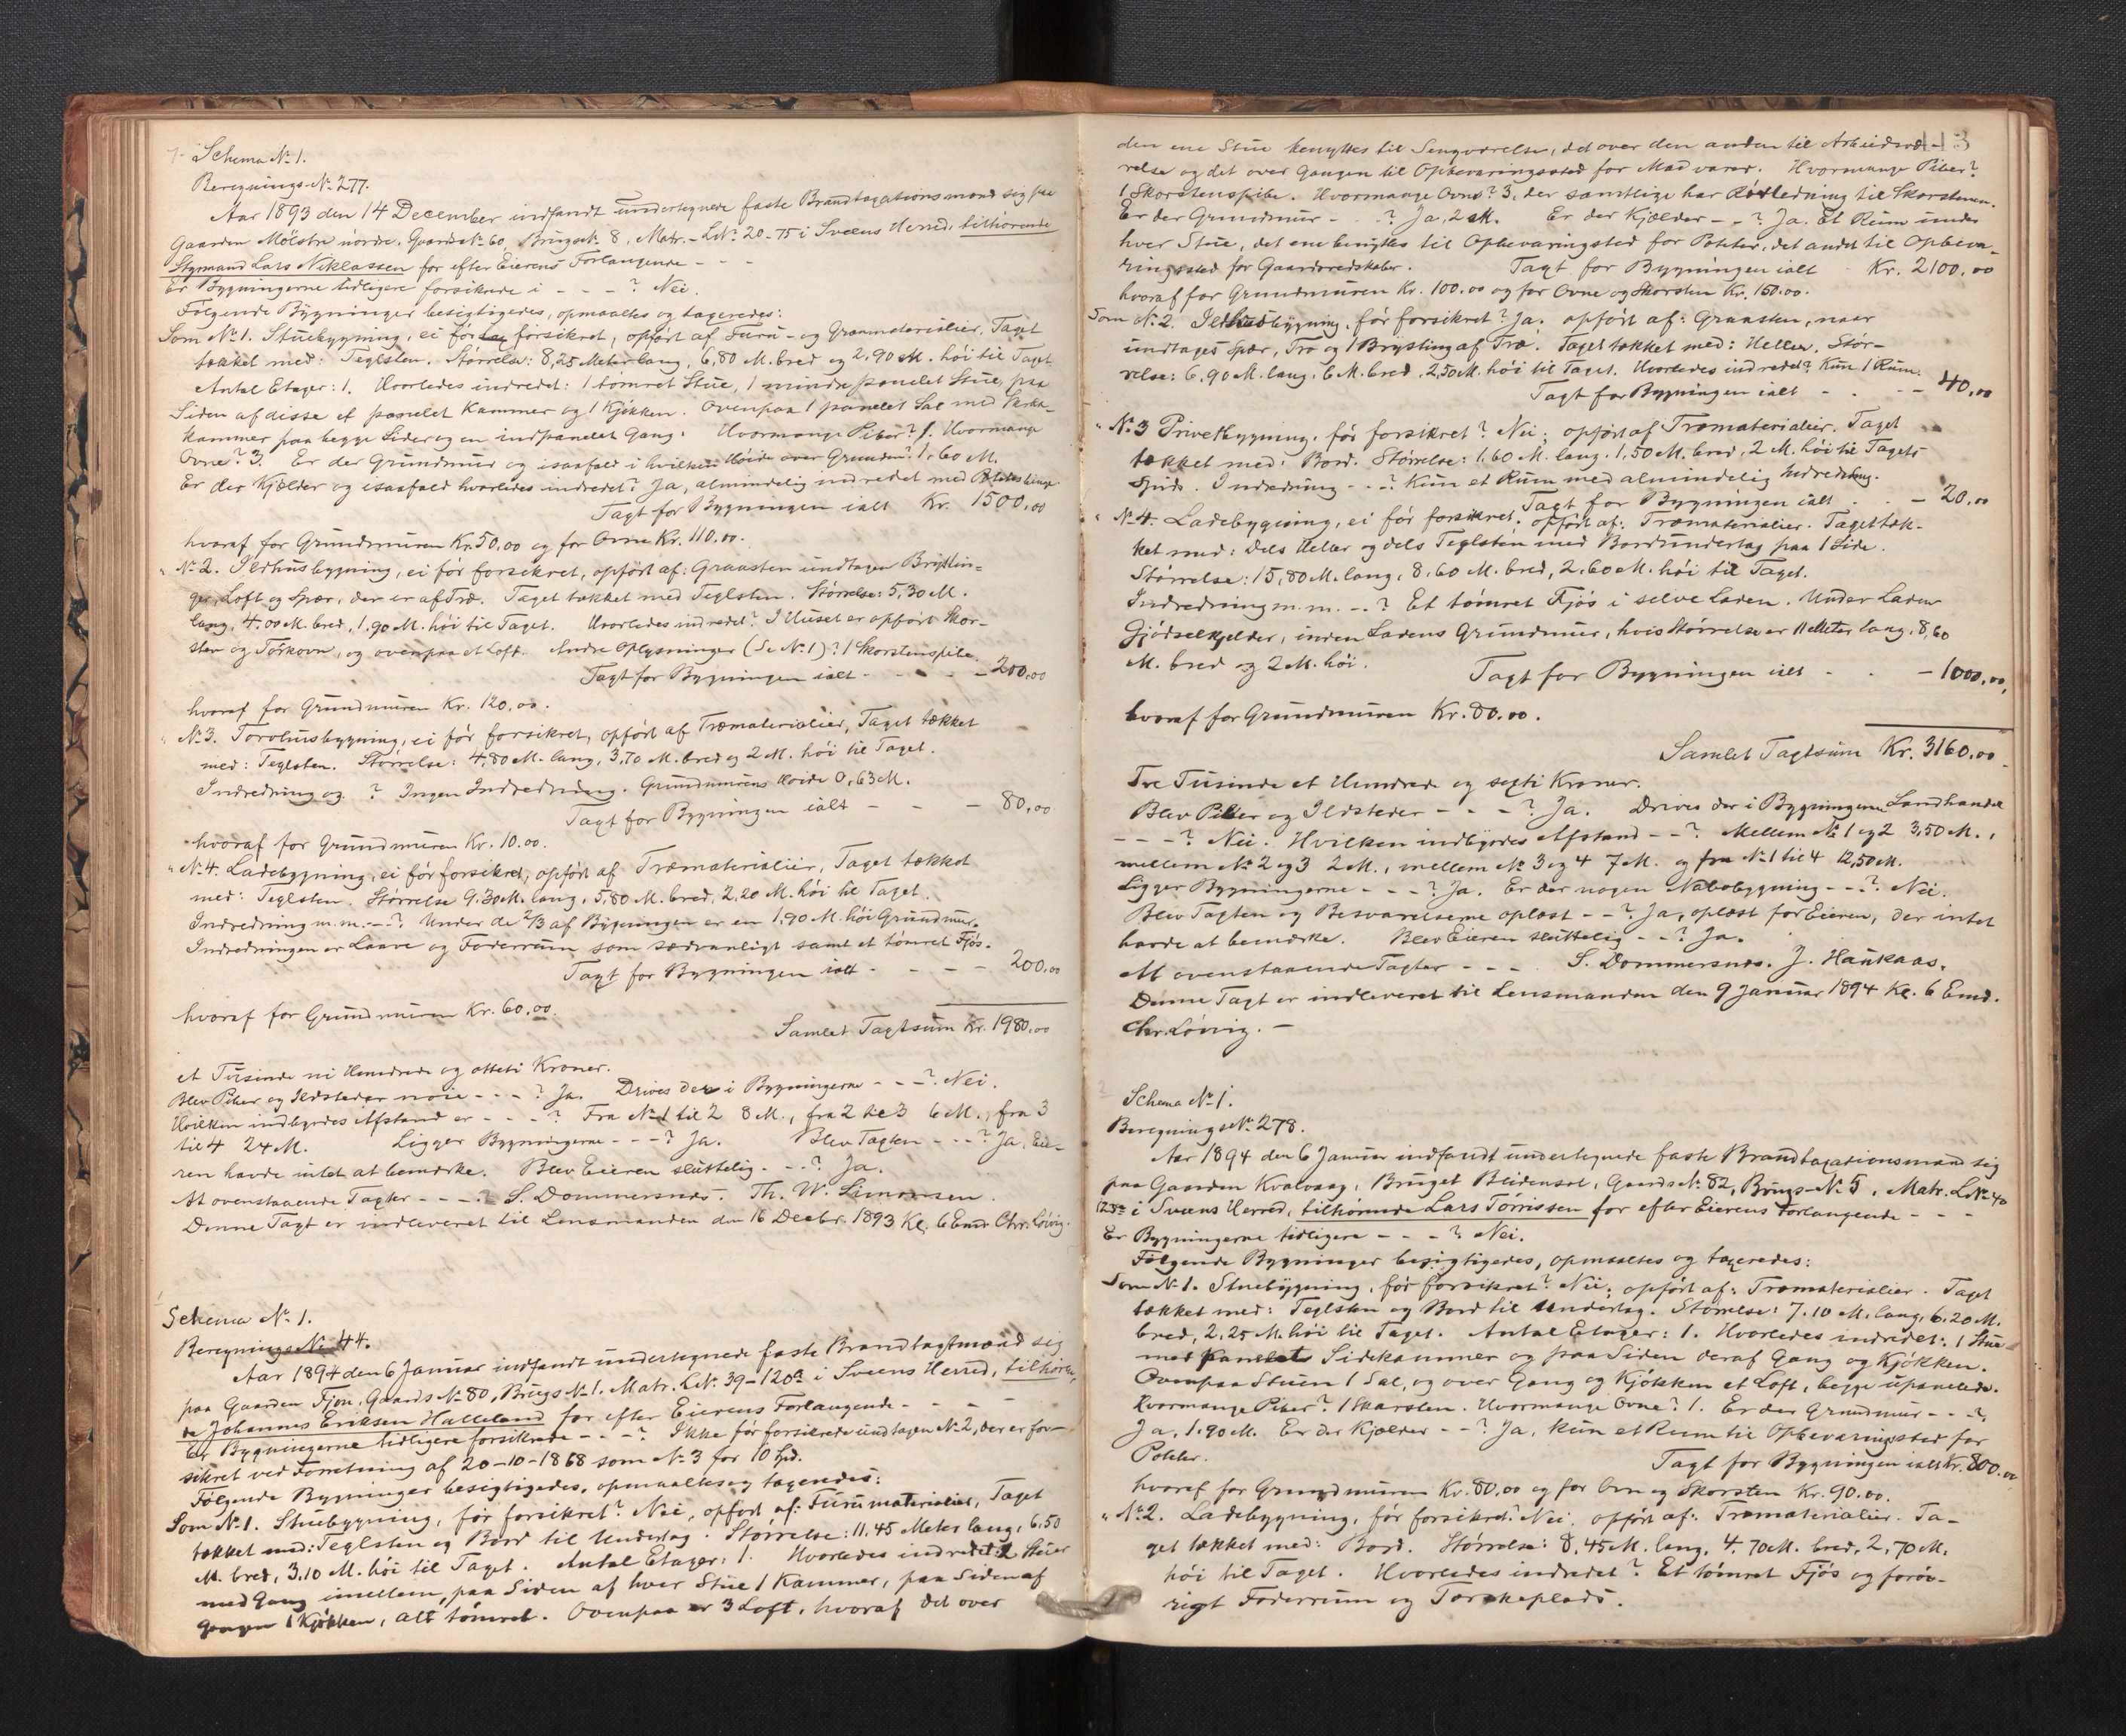 Schema No 1.
Beregnings No 277.
Aar 1893 den 14 December indfandt undertegnede faste Brandtaxationsmænd sig paa
Gaarden Mölstre nordre. Gaards No 60, Brugs No 8, Matr.-L.No 20-75 i Sveens Herred, tilhørende
Styrmand Lars Niklassen for efter Eierens Forlangende - - -
Er Bygningerne tidligere forsikrede i - - - ? Nei.
Følgende Bygninger besigtigedes, opmaaltes og taxeredes:
Som No 1. Stuebygning, ei før forsikret, opført af Furu- og Granmaterialier, Taget
tækket med: Teglsten. Størrelse: 8,25 Meter lang, 6,80 M. bred og 2,90 M. høi til Taget.
Antal Etager: 1. Hvorledes indredet: 1 tømret Stue, 1 mindre panelet Stue, paa
Siden af disse et panelet Kammer og 1 Kjøkken. Ovenpaa 1 panelet Sal med
kammer paa begge Sider og en indpanelet Gang. Hvormange Piber? 1. Hvormange
Ovne? 3. Er der Grundmur og isaafald i hvilken Høide over Grunden? 1,60 M.
Er der Kjælder og isaafald hvorledes indredet? Ja, almindelig indredet med Potetesbinge.
Taxt for Bygningen ialt Kr. 1500,00
hvoraf for Grundmuren Kr. 50,00 og for Ovne Kr. 110.00.
" No 2. Ildhusbygning, ei før forsikret, opført af: Graasten undtagen Brystin-
ger, Loft og Spær, der er af Træ. Taget tækket med Teglsten. Størrelse: 5,30 M.
lang, 4.00 M. bred, 1,90 M. høi til Taget. Hvorledes indredet? I Huset er opført Skor-
sten og Tørkovn, og ovenpaa et Loft. Andre Oplysninger (Se No 1)? 1 Skorstenspibe.
Taxt for Bygningen ialt - - - 200,00
hvoraf for Grundmuren Kr. 120,00.
" No 3. Torvhusbygning, ei før forsikret, opført af Træmaterialier, Taget tækket
med: Teglsten. Størrelse: 4,80 M. lang, 3,70 M. bred og 2 M. høi til Taget.
Indredning og ? Ingen Indredning. Grundmurens Høide 0,63 M.
Taxt for Bygningen ialt - - - 80,00
hvoraf for Grundmuren Kr. 10.00.
" No 4. Ladebygning, ei før forsikret, opført af Træmaterialier, Taget tækket
med: Teglsten. Størrelse 9.30 M. lang, 5,80 M. bred, 2,20 M. høi til Taget.
Indredning m.m. - - ? Under de 2/3 af Bygningen er en 1,90 M. høi Grundmur.
Indredningen er Laave og Foderrum som sædvanligt samt et tømret Fjøs.
Taxt for Bygningen ialt - - - - 200,00
hvoraf for Grundmuren Kr. 60,00.
Samlet Taxtsum Kr. 1980,00
et Tusinde ni Hundrede og otteti Kroner.
Blev Piber og Ildsteder nøie - - - ? Ja. Drives der i Bygningerne - - - ? Nei.
Hvilken indbyrdes Afstand er - - - ? Fra No 1 til 2 8 M., fra 2 til 3 6 M., fra 3
til 4 24 M. Ligger Bygningerne - - - ? Ja. Blev Taxten - - - ? Ja, Eie-
ren havde intet at bemærke. Blev Eieren sluttelig - - ? Ja.
At ovenstaaende Taxter - - - ? S. Dommersnes. Th. W. Simonsen.
Denne Taxt er indleveret til Lensmanden den 16 Decbr. 1893 Kl. 6 Emd. Chr. Løvig.
Schema No 1.
Beregnings No 44.
Aar 1894 den 6 Januar indfandt undertegnede faste Brandtaxtmænd sig
paa Gaarden Fjon, Gaards No 80, Brugs No 1. Matr. L.No. 39-120a i Sveens Herred, tilhøren-
de Johannes Eriksen Halleland for efter Eierens Forlangende - - - -
Er Bygningerne tidligere forsikrede - - - ? Ikke før forsikrede undtagen No 2, der er for-
sikret ved Forretning af 20-10-1868 som No 3 for 10 Spd.
Følgende Bygninger besigtigedes, opmaaltes og taxeredes:
Som No 1. Stuebygning, før forsikret? Nei, opført af: Furumaterialier, Taget
tækket med: Teglsten og Bord til Undertag. Størrelse: 11.45 Meter lang, 6,50
M. bred, 3,10 M. høi til Taget. Antal Etager: 1. Hvorledes indredet: 2 Stuer
med Gang imellem, paa Siden af hver Stue 1 Kammer, paa Siden af
Gangen 1 Kjøkken, alt tømret. Ovenpaa er 3 Loft, hvoraf det over
113
den ene Stue benyttes til Sengværelse, det over den anden til Arbeidsvæ-
relse og det over Gangen til Opbevaringssted for Madvarer. Hvormange Piber?
1 Skorstenspibe. Hvormange Ovne? 3, der samtlige har Rørledning til Skorstenen.
Er der Grundmur - - ? Ja, 2 M. Er der Kjælder - - ? Ja. Et Rum under
hver Stue, det ene benyttes til Opbevaringssted for Poteter, det andet til Opbeva-
ringssted for Gaardsredskaber. Taxt for Bygningen ialt Kr. 2100,00
hvoraf for Grundmuren Kr. 100.00 og for Ovne og Skorsten Kr. 150.00.
Som No 2. Ildhusbygning, før forsikret? Ja. opført af: Graasten, naar
undtages Spær, Tro og 1 Brystning af Træ. Taget tækket med: Heller. Stør-
relse: 6,90 M. lang, 6 M. bred, 2,50 M. høi til Taget. Hvorledes indredet? Kun 1 Rum.
Taxt for Bygningen ialt - - - 40,00
" No 3 Privetbygning, før forsikret? Nei, opført af Træmaterialier. Taget
tækket med: Bord. Størrelse: 1,60 M. lang, 1,50 M. bred, 2 M. høi til Tagets
Spids. Indredning - - ? Kun et Rum med almindelig Indredning.
Taxt for Bygningen ialt - - - 20,00
" No 4. Ladebygning, ei før forsikret; opført af: Træmaterialier. Taget tæk-
ket med: Dels Heller og dels Teglsten med Bordundertag paa 1 Side.
Størrelse: 15,80 M. lang, 8,60 M. bred, 2,60 M. høi til Taget.
Indredning m.m. - - ? Et tømret Fjøs i selve Laden. Under Laden
Gjødselkjelder, inden Ladens Grundmur, hvis Størrelse er 11 Meter lang, 8,60
M. bred og 2 M. høi. Taxt for Bygningen ialt - - - 1000,00,
hvoraf for Grundmuren Kr. 80.00.
Samlet Taxtsum Kr. 3160,00
Tre Tusinde et Hundrede og sexti Kroner.
Blev Piber og Ildsteder - - - ? Ja. Drives der i Bygningerne Landhandel
- - - ? Nei. Hvilken indbyrdes Afstand - - ? Mellem No 1 og 2 3,50 M.,
mellem No 2 og 3 2 M., mellem No 3 og 4 7 M. og fra No 1 til 4 12,50 M.
Ligger Bygningerne - - - ? Ja. Er der nogen Nabobygning - - ? Nei.
Blev Taxten og Besvarelserne oplæst - - ? Ja, oplæst for Eieren, der intet
havde at bemærke. Blev Eieren sluttelig - - ? Ja.
At ovenstaaende Taxter - - - S. Dommersnes. J. Haukaas.
Denne Taxt er indleveret til Lensmanden den 9 Januar 1894 Kl. 6 Emd.
Chr. Løvig. -
Schema No 1.
Beregnings No 278.
Aar 1894 den 6 Januar indfandt undertegnede faste Brandtaxationsmænd sig
paa Gaarden Kvalvaag, Bruget, Gaards No 82, Brugs-No 5, Matr. L.No 40
i Sveens Herred, tilhørende Lars Tørrissen for efter Eierens Forlangende - - -
Er Bygningerne tidligere - - - ? Nei.
Følgende Bygninger besigtigedes, opmaaltes og taxeredes:
Som No 1. Stuebygning, før forsikret? Nei; opført af: Træmaterialier. Taget
tækket med: Teglsten og Bord til Undertag. Størrelse: 7.10 M. lang, 6.20 M.
bred, 2,25 M. høi til Taget. Antal Etager: 1. Hvorledes indredet: 1 Stue
med Sidekammer og paa Siden deraf Gang og Kjøkken.
Ovenpaa Stuen 1 Sal, og over Gang og Kjøkken et Loft, begge upanelede.
Hvormange Piber? 1 Skorsten. Hvormange Ovne? 1. Er der Grundmur - - ?
Ja, 1.90 M. Er der Kjælder - - ? Ja, kun et Rum til Opbevaringssted for
Poteter. Taxt for Bygningen ialt Kr. 800.00
hvoraf for Grundmuren Kr. 80.00 og for Ovn og Skorsten Kr. 90.00.
" No 2. Ladebygning, før forsikret? Nei, opført af: Træmaterialier. Ta-
get tækket med: Bord. Størrelse: 8,45 M. lang, 4.70 M. bred, 2,70 M.
høi til Taget. Hvorledes indredet? Et tømret Fjøs og forøv-
rigt Foderrum og Torskeplads.